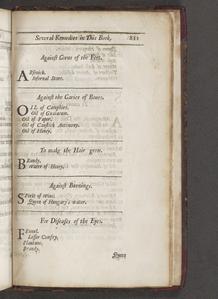 Several Remedies in This Book.
Against Corns of the Feet.
ARsnick.
Infernal Stone.
Against the Caries of Bones.
OIL of Camphire.
Oil of Guaiacum.
Oil of Paper.
Oil of Caustick Antimony.
Oil of Honey.
To make the Hair grow.
BRandy.
Water of Honey.
Against Burnings.
SPirit of Wine.
Queen of Hungary's water.
For Diseases of the Eyes.
FEnnel.
Lesser Comfry,
Plantane.
Brandy.